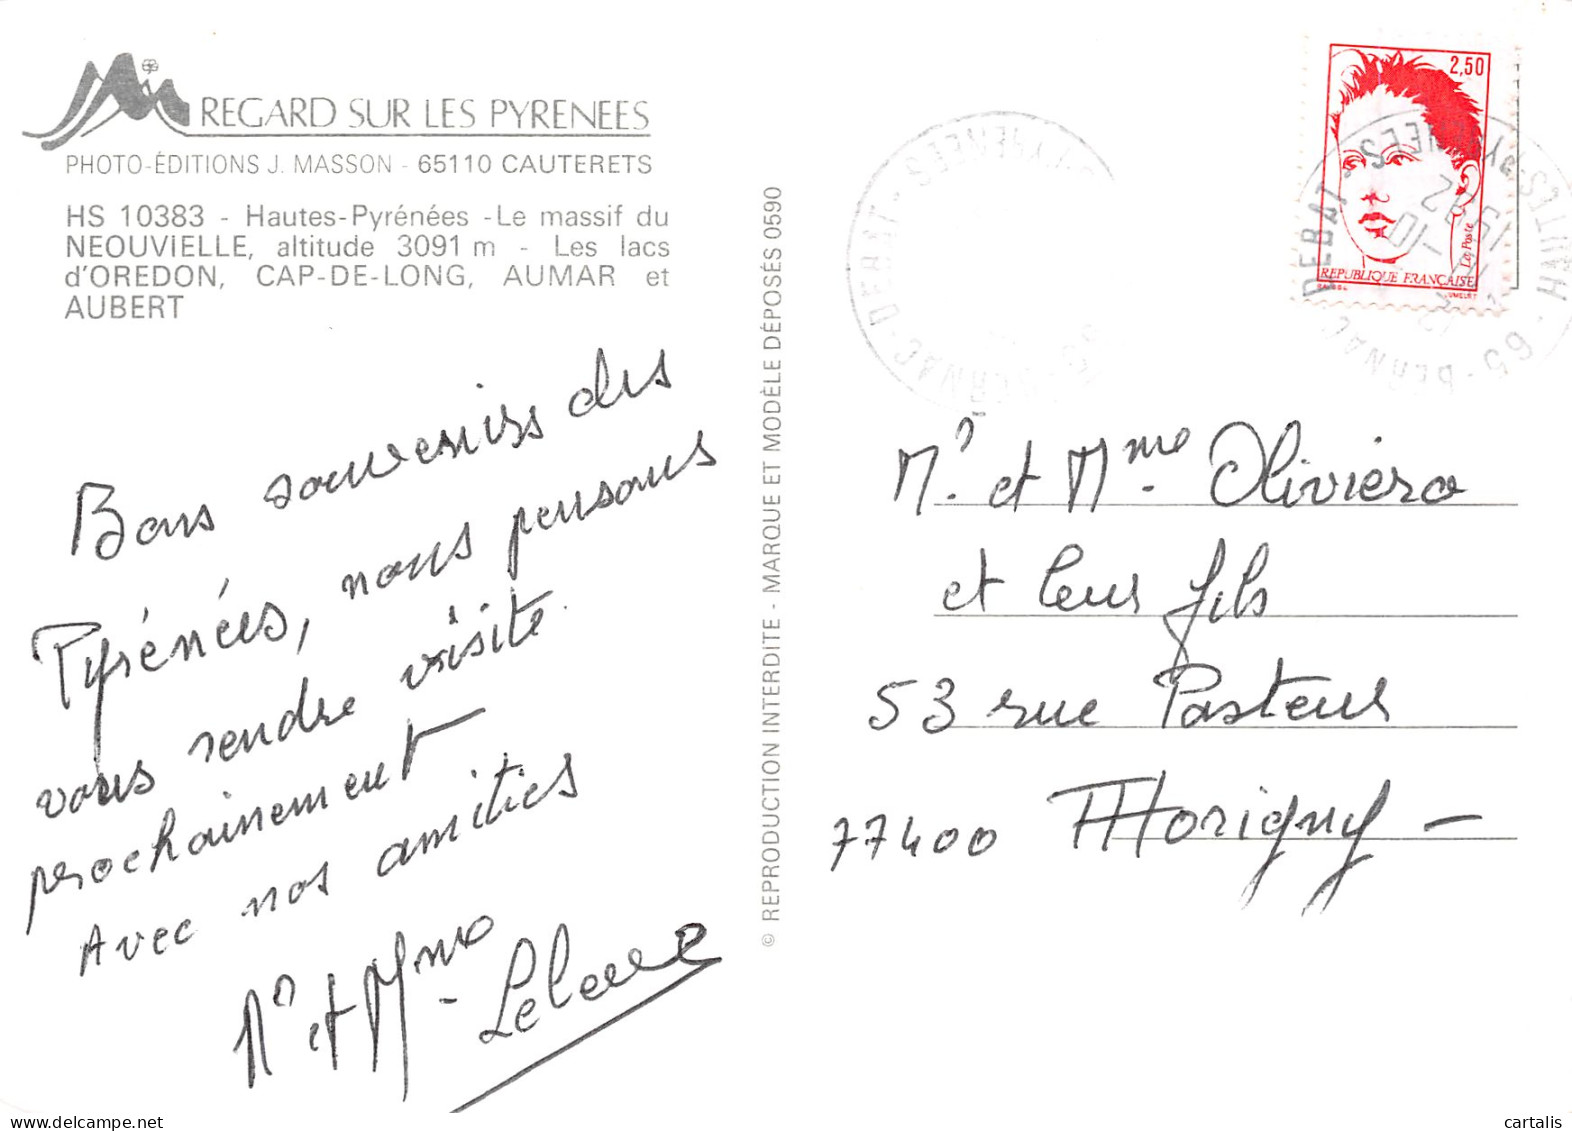 REGARD SUR LES PYRENEES
PHOTO-ÉDITIONS J. MASSON - 65110 CAUTERETS
HS 10383 - Hautes-Pyrénées - Le massif du
NEOUVIELLE, altitude 3091 m - Les lacs
d'OREDON, CAP-DE-LONG, AUMAR et
AUBERT
Bons souvenirs des
Pyrénées, nous pensons
vous rendre visite.
prochainement
Avec nos amitiés
Mr et Mme
© REPRODUCTION INTERDITE - MARQUE ET MODÈLE DÉPOSÉS 0590
2,50
La Poste
REPUBLIQUE FRANÇAISE
BERNAC-DEBAT
65 - BERNAC DEBAT - HAUTES-PYRENEES
Mr. et Mme. Oliviero
et leur fils
53 rue Pasteur
77400 Thorigny -
cartalis